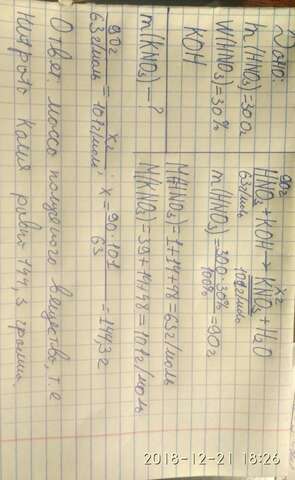 Дано:
m(HNO₃)=300г
W(HNO₃)=30%
KOH
m(KNO₃)—?
90г xг
HNO₃+KOH→KNO₃+H₂O
63г/моль 101г/моль
m(HNO₃)=300·30%/100%=90г
M(HNO₃)=1+14+48=63г/моль
M(KNO₃)=39+14+48=101г/моль
90г/63г/моль=xг/101г/моль; x=90·101/63=144,3г
Ответ: масса полученного вещества, т.е
Нитрата Калия равна 144,3 грамма.
2018-12-21 18:26